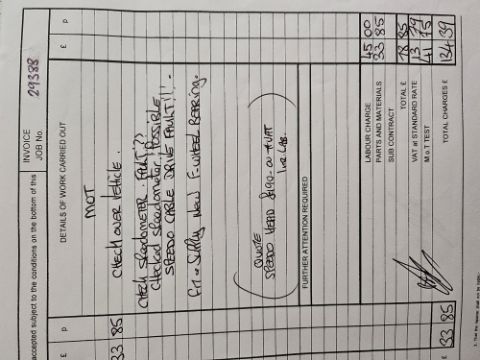 accepted subject to the conditions on the bottom of this
INVOICE
JOB No. 29388
£ p
DETAILS OF WORK CARRIED OUT
£ p
MOT
33 85
CHECK OVER VEHICLE.
CHECK SPEEDOMETER. FAULT??
CHECKED SPEEDOMETER, POSSIBLE
SPEEDO CABLE DRIVE FAULT!!!.
SUPPLY NEW F. WHEEL BEARING.
QUOTE
SPEEDO HEAD £190-00 + VAT
INC LAB.
FURTHER ATTENTION REQUIRED
LABOUR CHARGE 45 00
PARTS AND MATERIALS 33 85
SUB CONTRACT
TOTAL £ 78 85
VAT at STANDARD RATE 13 79
M.o.T TEST 41 75
£ 33 85
TOTAL CHARGES £ 134 39